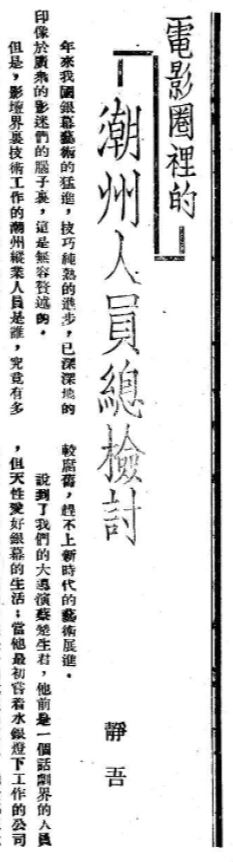 電影圈裡的
潮州人員總檢討
靜吾
年來我國銀幕藝術的猛進，技巧純熟的進步，已深深地的
印像於廣衆的影迷們的腦子裏，這是無容贅述的。
但是，影壇界裏技術工作的潮州縱業人員是誰，究竟有多
較腐舊，趕不上新時代的藝術展進。
說到了我們的大導演蔡楚生君，他前是一個話劇界的人員
，但天性愛好銀幕的生活；當他最初嘗着水銀燈下工作的公司